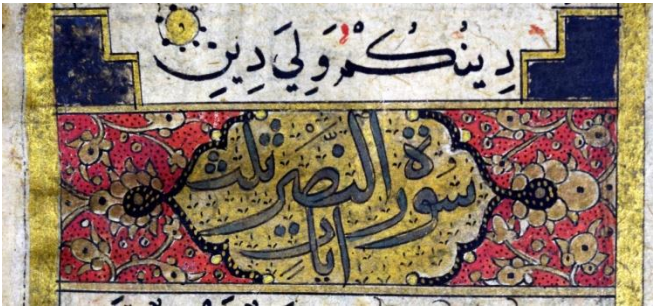 دِينُكُمْ وَلِيَ دِينِ
سورة النصر ثلث
ايات